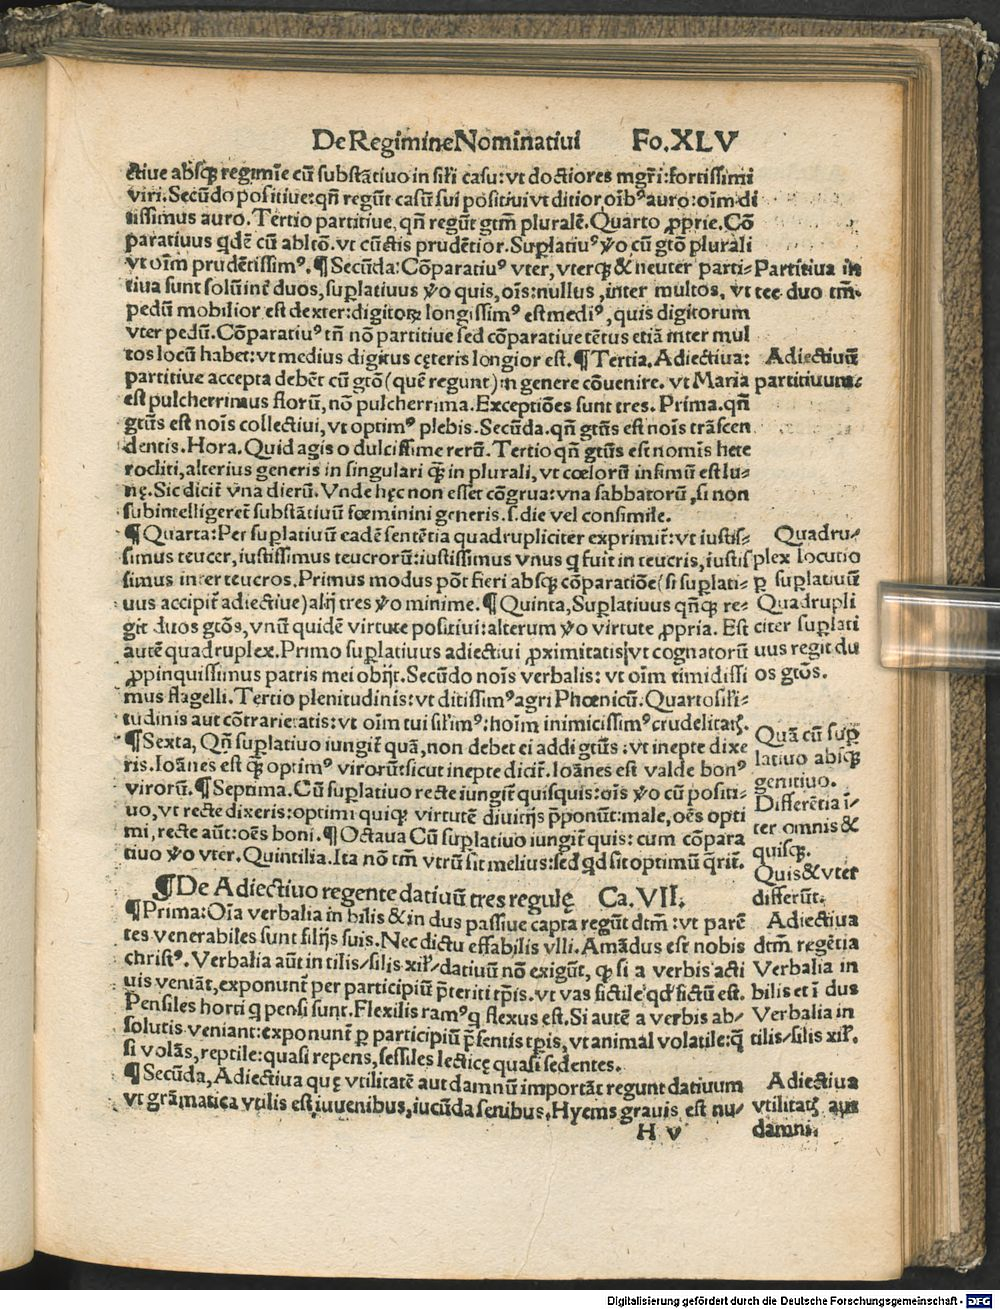 De Regimine Nominatiui Fo. XLV
ctiue absqꝫ regimīe cū substātiuo in sil̄i casu: vt doctiores mgr̄i: fortissimi
viri. Secūdo positiue: qn̄ regūt casū sui positiui vt ditior oībꝰ auro: oīm di
tissimus auro. Tertio partitiue, qn̄ regūt gtm̄ pluralē. Quarto ꝓprie. Cō
paratiuus qdē cū abltō. vt cūctis prudētior. Suꝑlatiuꝰ ꝟo cū gtō plurali
vt oīm prudētissimꝰ. ¶ Secūda: Cōparatiuꝰ vter, vterqꝫ & neuter parti-
tiua sunt solū inter̄ duos, suꝑlatiuus ꝟo quis, oīs: nullus, inter multos, vt
pedū mobilior est dexter: digitoꝝ longissimꝰ est mediꝰ, quis digitorum
vter pedū. Cōparatiuꝰ tn̄ nō partitiue sed cōparatiue tētus etiā inter mul
tos locū habet: vt medius digitus cęteris longior est. ¶ Tertia. Adiectiua:
partitiue accepta debēt cū gtō (quē regunt) in genere cōuenire. vt Maria
est pulcherrimus florū, nō pulcherrima. Exceptiōes sunt tres. Prima. qn̄
gtūs est noīs collectiui, vt optimꝰ plebis. Secūda. qn̄ gtūs est noīs trāscen
dentis. Hora. Quid agis o dulcissime rerū. Tertio qn̄ gtūs est nomīs hete
rocliti, alterius generis in singulari qꝫ in plurali, vt cœlorū infimū est lu-
nę. Sic dicit̄ vna dierū. Vnde hęc non esset cōgrua: vna sabbatorū, si non
subintelligeret̄ substātiuū fœminini generis. s. die vel consimile.
¶ Quarta: Per suꝑlatiuū eadē sentētia quadrupliciter exprimit̄: vt iustis-
simus teucer, iustissimus teucrorū: iustissimus vnus q fuit in teucris, iustis
simus inter teucros. Primus modus pōt fieri absqꝫ cōparatiōe (si suꝑlati-
uus accipit̄ adiectiue) alij tres ꝟo minime. ¶ Quinta, Suꝑlatiuus qn̄qꝫ re-
git duos gtōs, vnū quidē virtute positiui: alterum ꝟo virtute ꝓpria. Est
autē quadruplex. Primo suꝑlatiuus adiectiui ꝓximitatis, vt cognatorū
ꝓpinquissimus patris mei obijt. Secūdo noīs verbalis: vt oīm timidissi
mus flagelli. Tertio plenitudinis: vt ditissimꝰ agri Phœnicū. Quarto sil̄i-
tudinis aut cōtrarietatis: vt oīm tui sil̄imꝰ: hoīm inimicissimꝰ crudelitatꝭ.
¶ Sexta, Qn̄ suꝑlatiuo iungit̄ quā, non debet ei addi gtūs: vt inepte dixe
ris. Ioānes est qꝫ optimꝰ virorū: sicut inepte dicit̄. Ioānes est valde bonꝰ
virorū. ¶ Septima. Cū suꝑlatiuo recte iungit̄ quisquis: oīs ꝟo cū positi-
uo, vt recte dixeris: optimi quiqꝫ virtutē diuitijs p̄ponūt: male, oēs opti
mi, recte aūt: oēs boni. ¶ Octaua Cū suꝑlatiuo iungit̄ quis: cum cōpara
tiuo ꝟo vter. Quintilia. Ita nō tm̄ vtrū sit melius: sed qd sit optimū q̄rit̄.
¶ De Adiectiuo regente datiuū tres regulę Ca. VII.
¶ Prima: Oīa verbalia in bilis & in dus passiue capta regūt dtm̄: vt parē
tes venerabiles sunt filijs suis. Nec dictu effabilis vlli. Amādus est nobis
christꝰ. Verbalia aūt in tilis/silis xil̄/datiuū nō exigūt, qꝫ si a verbis acti
uis veniāt, exponunt̄ per participiū p̄teriti tp̄is. vt vas fictile qd fictū est.
Pensiles horti q pensi sunt. Flexilis ramꝰ q flexus est. Si autē a verbis ab-
solutis veniant: exponunt̄ ꝑ participiū p̄sentis tp̄is, vt animal volatile: q̄
si volās, reptile: quasi repens, sessiles lecticę quasi sedentes.
¶ Secūda, Adiectiua quę vtilitatē aut damnū importāt regunt datiuum
vt grāmatica vtilis est iuuenibus, iucūda senibus. Hyems grauis est nu-
H v
Partitiua in
tee duo tm̄.
Adiectiuū
partitiuum.
Quadru-
plex locutio
ꝑ suꝑlatiuū
Quadrupli
citer suꝑlati
uus regit du
os gtōs.
Quā cū suꝑ
latiuo absqꝫ
genitiuo.
Differētia i-
ter omnis &
quisqꝫ.
Quis & vter
differūt.
Adiectiua
dtm̄ regētia
Verbalia in
bilis et ī dus
Verbalia in
tilis/silis xil̄.
Adiectiua
vtilitatꝭ aut
damni.
Digitalisierung gefördert durch die Deutsche Forschungsgemeinschaft - DFG